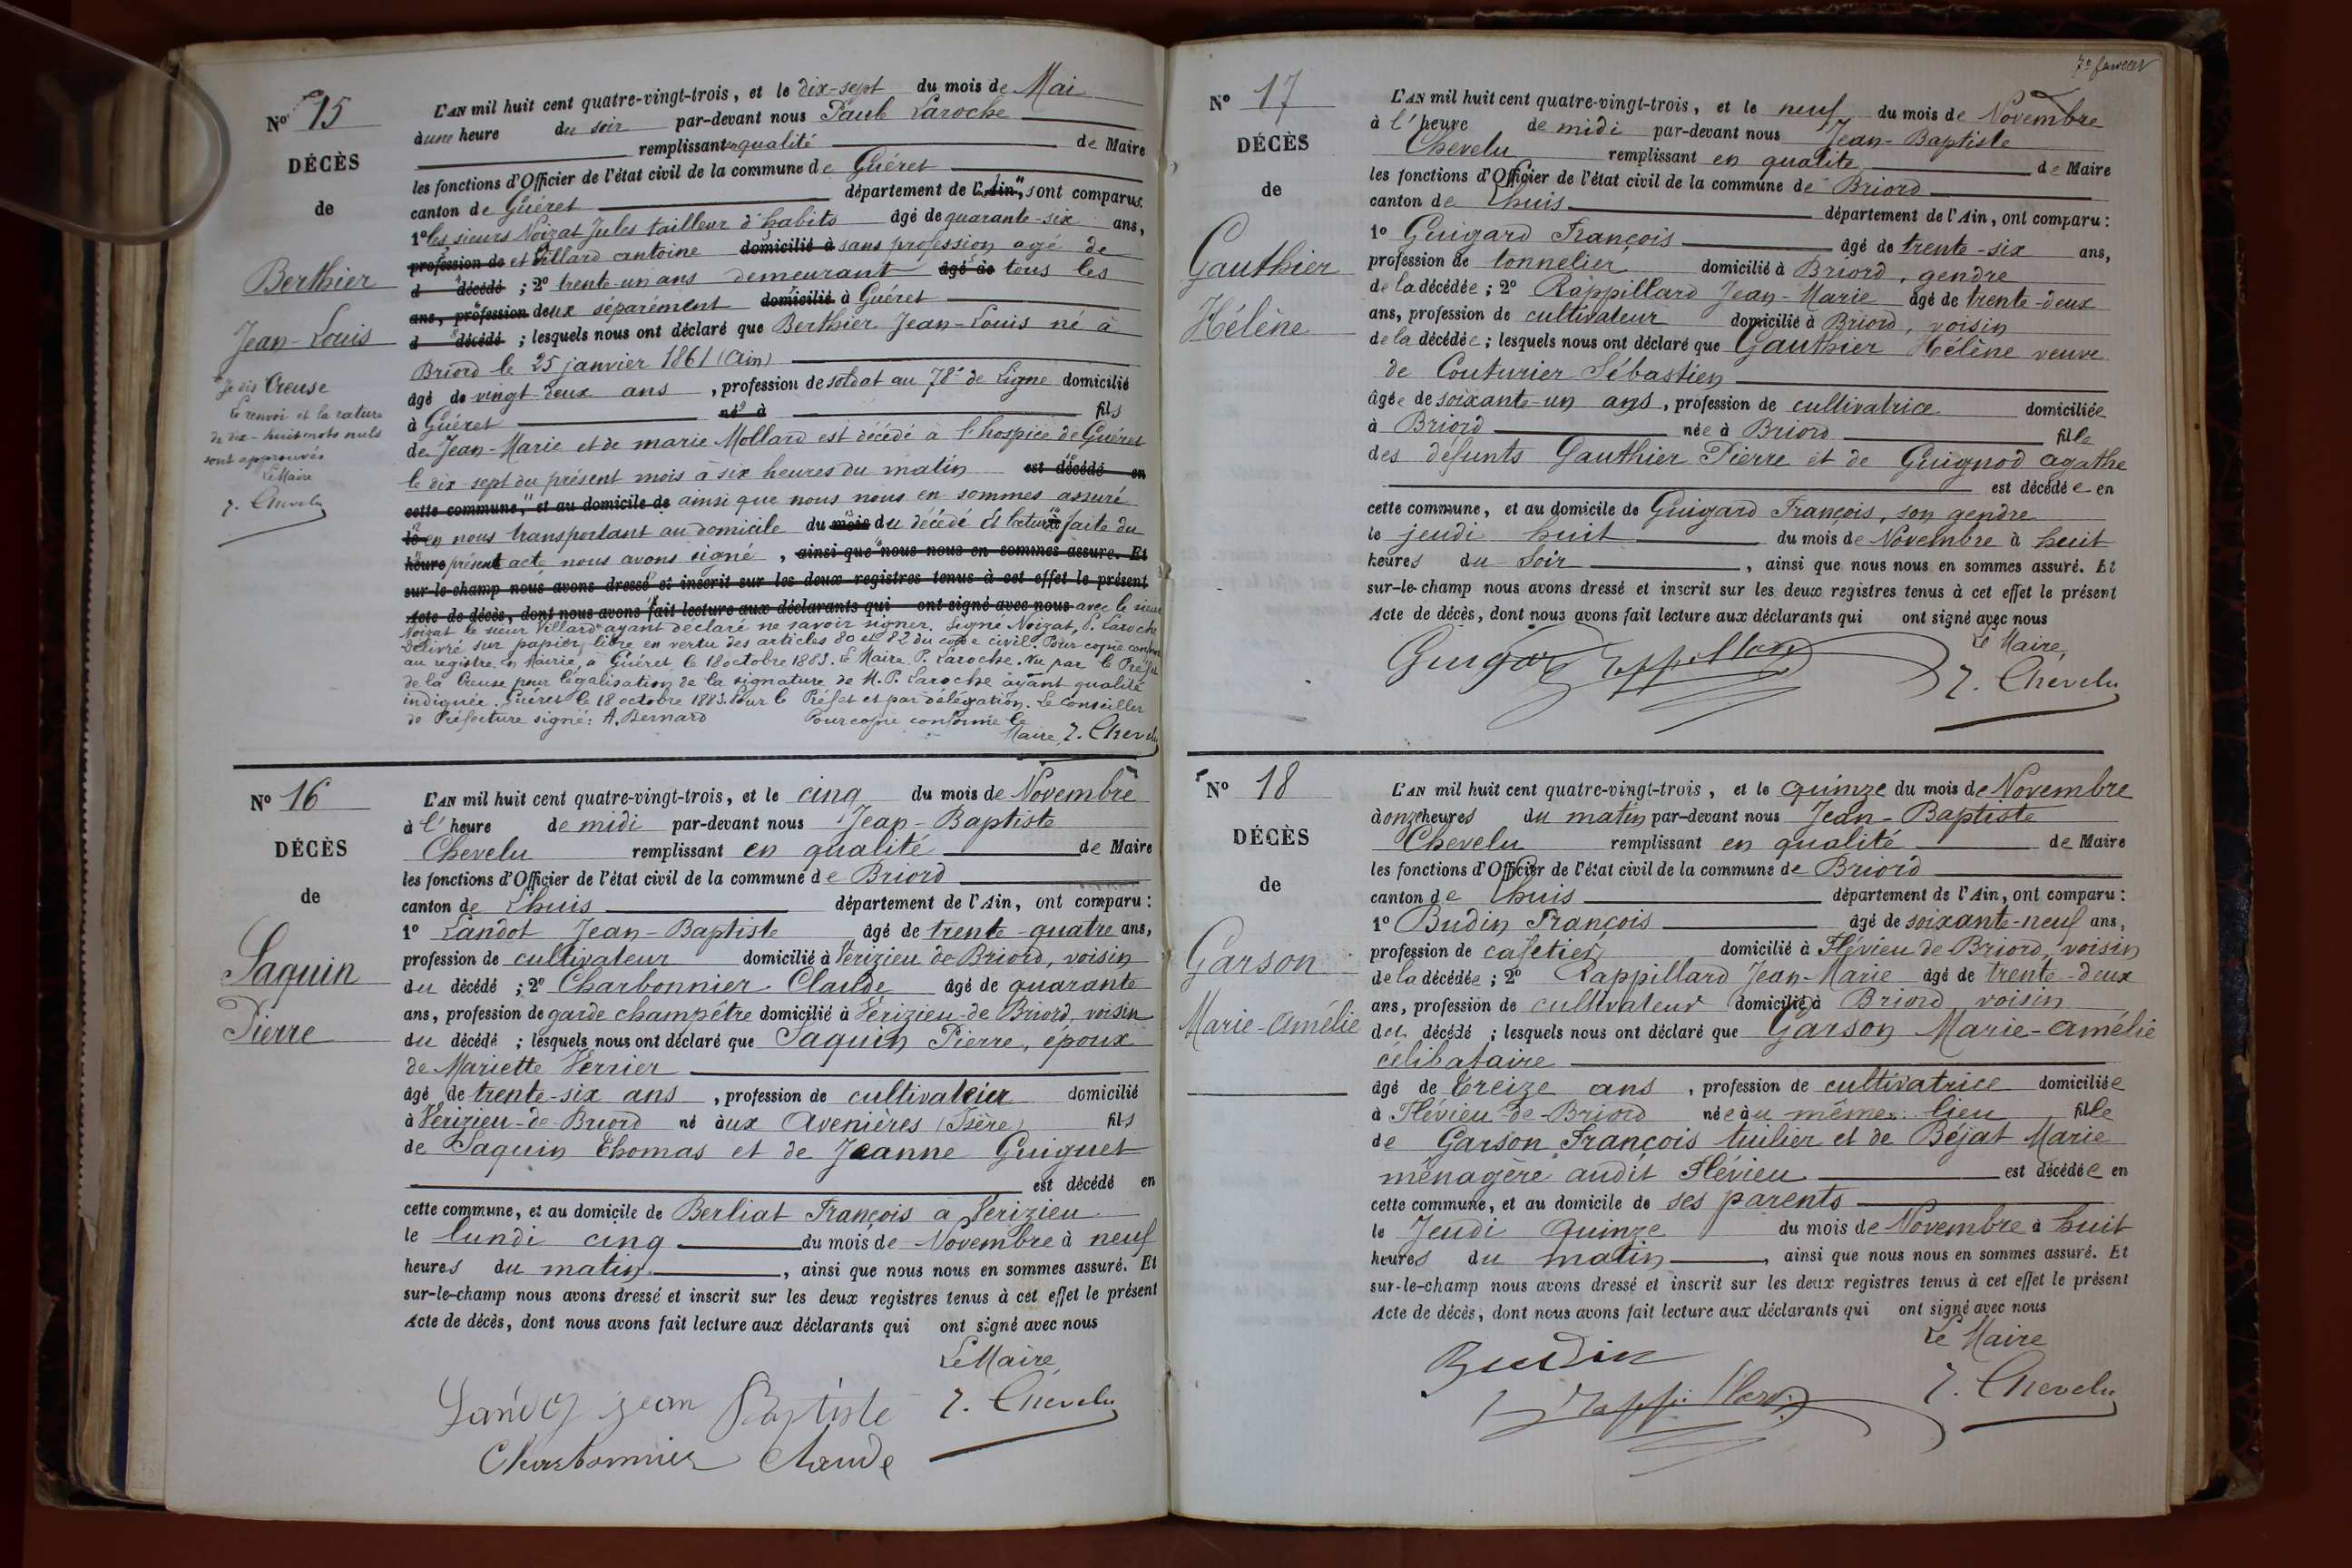 No 15
DÉCÈS
de
Berthier
Jean-Louis
Je dis Creuse
Le renvoi et la rature
de dix-huit mots nuls
sont approuvés
Le Maire
J. Chevelu
L'AN mil huit cent quatre-vingt-trois, et le dix-sept du mois de Mai
à une heure du soir par-devant nous Paul Laroche
remplissant en qualité de Maire
les fonctions d'Officier de l'état civil de la commune de Guéret
canton de Guéret département de l'Ain, sont comparus
1º les sieurs Noizat Jules tailleur d'habits âgé de quarante-six ans,
profession de et Villard antoine domicilié à sans profession agé de
d décédé ; 2º trente-un ans demeurant âgé de tous les
ans, profession deux séparément domicilié à Guéret
d décédé ; lesquels nous ont déclaré que Berthier Jean-Louis né à
Briord le 25 janvier 1861 (Ain)
âgé de vingt-deux ans , profession de soldat au 78e de Ligne domicilié
à Guéret né à fils
de Jean-Marie et de marie Mollard est décédé à l'hospice de Guéret
le dix-sept du présent mois à six heures du matin est décédé en
cette commune, et au domicile de ainsi que nous nous en sommes assuré
le en nous transportant au domicile du mois du décédé Et lecture à faite du
heure présent acte nous avons signé , ainsi que nous nous en sommes assuré. Et
sur-le-champ nous avons dressé et inscrit sur les deux registres tenus à cet effet le présent
Acte de décès, dont nous avons fait lecture aux déclarants qui ont signé avec nous avec le sieur
Noizat le sieur Villard ayant déclaré ne savoir signer. Signé Noizat, P. Laroche
Délivré sur papier libre en vertu des articles 80 et 82 du code civil. Pour copie conforme
au registre. En Mairie, à Guéret le 18 octobre 1883. Le Maire P. Laroche. Vu par le Préfet
de la Creuse pour légalisation de la signature de M. P. Laroche ayant qualité
indiquée. Guéret le 18 octobre 1883. Pour le Préfet et par délégation. Le Conseiller
de Préfecture signé : A. Bernard Pour copie conforme le
Maire J. Chevelu
No 16
DÉCÈS
de
Saquin
Pierre
L'AN mil huit cent quatre-vingt-trois, et le cinq du mois de Novembre
à l'heure de midi par-devant nous Jean-Baptiste
Chevelu remplissant en qualité de Maire
les fonctions d'Officier de l'état civil de la commune de Briord
canton de Lhuis département de l'Ain, ont comparu :
1º Landot Jean-Baptiste âgé de trente-quatre ans,
profession de cultivateur domicilié à Vérizieu de Briord, voisin
du décédé ; 2º Charbonnier Claude âgé de quarante
ans, profession de garde champêtre domicilié à Vérizieu-de Briord, voisin
du décédé ; lesquels nous ont déclaré que Saquin Pierre, époux
de Mariette Verrier
âgé de trente-six ans , profession de cultivateur domicilié
à Vérizieu-de Briord né aux Avenières (Isère) fils
de Saquin Thomas et de Jeanne Guiguet
est décédé en
cette commune, et au domicile de Berliat François à Vérizieu
le lundi cinq du mois de Novembre à neuf
heures du matin , ainsi que nous nous en sommes assuré. Et
sur-le-champ nous avons dressé et inscrit sur les deux registres tenus à cet effet le présent
Acte de décès, dont nous avons fait lecture aux déclarants qui ont signé avec nous
Le Maire
Landot jean Baptiste J. Chevelu
Charbonnier Claude
7e feuillet
No 17
DÉCÈS
de
Gauthier
Hélène
L'AN mil huit cent quatre-vingt-trois, et le neuf du mois de Novembre
à l'heure de midi par-devant nous Jean-Baptiste
Chevelu remplissant en qualité de Maire
les fonctions d'Officier de l'état civil de la commune de Briord
canton de Lhuis département de l'Ain, ont comparu :
1º Guigard François âgé de trente-six ans,
profession de tonnelier domicilié à Briord, gendre
de la décédée ; 2º Rappillard Jean-Marie âgé de trente-deux
ans, profession de cultivateur domicilié à Briord, voisin
de la décédée ; lesquels nous ont déclaré que Gauthier Hélène veuve
de Couturier Sébastien
âgée de soixante-un ans, profession de cultivatrice domiciliée
à Briord née à Briord fille
des défunts Gauthier Pierre et de Guignod agathe
est décédée en
cette commune, et au domicile de Guigard François, son gendre
le jeudi huit du mois de Novembre à huit
heures du soir , ainsi que nous nous en sommes assuré. Et
sur-le-champ nous avons dressé et inscrit sur les deux registres tenus à cet effet le présent
Acte de décès, dont nous avons fait lecture aux déclarants qui ont signé avec nous
Le Maire,
Guigard Rappillard J. Chevelu
No 18
DÉCÈS
de
Garson
Marie-Amélie
L'AN mil huit cent quatre-vingt-trois, et le quinze du mois de Novembre
à onze heures du matin par-devant nous Jean-Baptiste
Chevelu remplissant en qualité de Maire
les fonctions d'Officier de l'état civil de la commune de Briord
canton de Lhuis département de l'Ain, ont comparu :
1º Budin François âgé de soixante-neuf ans,
profession de cafetier domicilié à Flévieu de Briord, voisin
de la décédée ; 2º Rappillard Jean-Marie âgé de trente-deux
ans, profession de cultivateur domicilié à Briord voisin
de l décédé ; lesquels nous ont déclaré que Garson Marie-amélie
célibataire
âgé de treize ans , profession de cultivatrice domiciliée
à Flévieu-de-Briord née au même lieu fille
de Garson François tuilier et de Béjat Marie
ménagère audit Flévieu est décédée en
cette commune, et au domicile de ses parents
le Jeudi quinze du mois de Novembre à huit
heures du matin , ainsi que nous nous en sommes assuré. Et
sur-le-champ nous avons dressé et inscrit sur les deux registres tenus à cet effet le présent
Acte de décès, dont nous avons fait lecture aux déclarants qui ont signé avec nous
Le Maire
Budin
Rappillard J. Chevelu